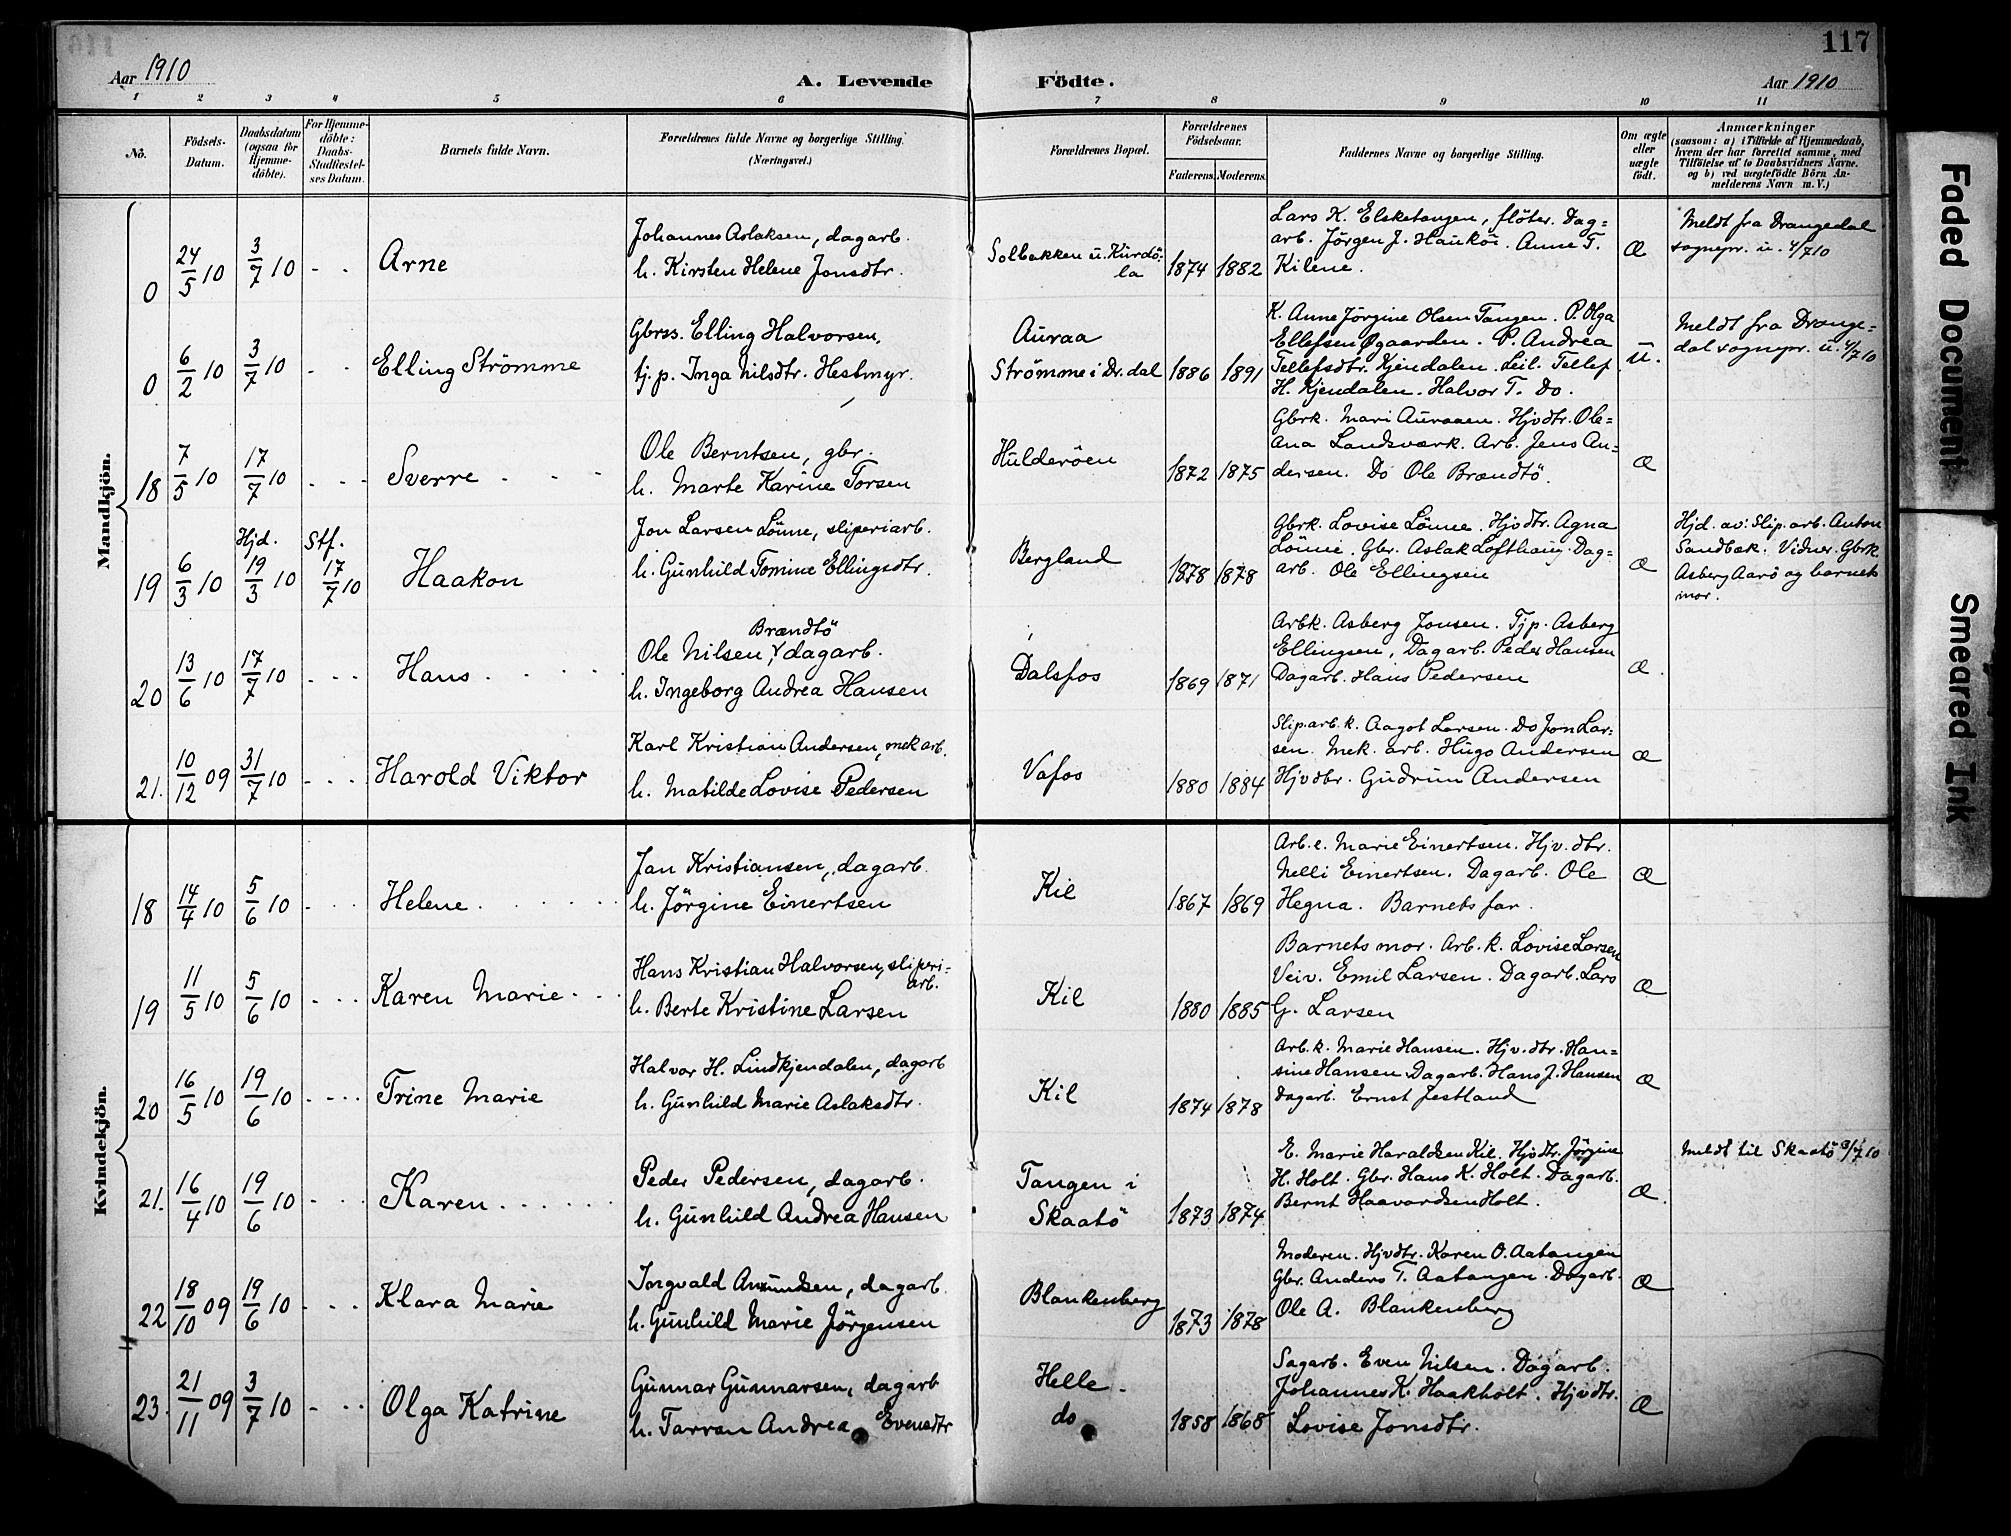 Aar 1910
A. Levende Födte.
Aar 1910
117
1 2 3 4 5 6 7 8 9 10 11
No.
Födsels-
Datum.
Daabsdatum
(ogsaa for
Hjemme-
döbte).
For Hjemme-
döbte:
Daabs-
Stadfæstel-
ses Datum.
Barnets fulde Navn.
Forældrenes fulde Navne og borgerlige Stilling.
(Næringsvei.)
Forældrenes Bopæl.
Forældrenes
Födselsaar.
Faderens. Moderens.
Faddernes Navne og borgerlige Stilling.
Om ægte
eller
uægte
födt.
Anmærkninger
(saasom: a) i Tilfælde af Hjemmedaab,
hvem der har forrettet samme, med
Tilföielse af to Daabsvidners Navne.
og b) ved uægtefödte Börn An-
melderens Navn m. V.)
Mandkjön.
0 24/5 10 3/7 10 - - Arne
Johannes Aslaksen, dagarb.
h. Kirsten Helene Jonsdtr.
Solbakken u. Kurdö-
la
1874 1882
Lars K. Eleketangen, flöter. Dag=
arb. Jörgen J. Haukös. Anne T.
Kilene.
Æ
Meldt fra Drangedal
sognepr. u. 4/7 10
0 6/2 10 3/7 10 - - Elling Strömme
Gbrss. Elling Halvorsen,
tj.p. Inga Nilsdtr. Hestmyr.
Auraa
Strömme i Dr.dal
1886 1891
K. Anne Jörgine Olsen Tangen. P. Olga
Ellefsen Øgaarden. P. Andrea
Tellefsdtr. Kjendalen. Leil. Tellef
H. Kjendalen. Halvor T. Do.
u.
Meldt fra Drange=
dal sognepr. u. 4/7 10
18 7/5 10 17/7 10 - - - Sverre - -
Ole Berntsen, gbr.
h. Marte Karine Torsen
Hulderöen
1872 1875
Gbrk. Mari Auraaen. Hjvdtr. Ole=
ana Landsværk. Arb. Jens An-
dersen. Do Ole Brændtö.
Æ
19 6/3 10 Hjd. 19/3 10 Stf. 17/7 10 Haakon
Jon Larsen Lönne, sliperiarb.
h. Gunhild Tomine Ellingsdtr.
Bergland
1878 1878
Gbrk. Lovise Lönne. Hjvdtr. Agna
Lönne. Gbr. Aslak Lofthaug. Dag-
arb. Ole Ellingsen
Æ
Hjd. av: Slip.arb. Anton
Sandbæk. Vidner. Gbrk
Asberg Aarö og barnets
mor.
20 13/6 10 17/7 10 - - - Hans
Brændtö
Ole Nilsen, dagarb.
h. Ingeborg Andrea Hansen
Dalsfos
1869 1871
Arbk. Asberg Jonsen. Tjp. Asberg
Ellingsen, Dagarb. Peder Hansen
Dagarb. Hans Pedersen
Æ
21. 10/12 09 31/7 10 - - - Harold Viktor
Karl Kristian Andersen, mek arb.
h. Matilde Lovise Pedersen
Vafos
1880 1884
Slip.arb. k. Aagot Larsen. Do Jon Lar=
sen. Mek. arb. Hugo Andersen
Hjvdtr. Gudrun Andersen
Æ
Kvindekjön.
18 14/4 10 5/6 10 - - - Helene
Jan Kristiansen, dagarb.
h. Jörgine Einertsen
Kil
1867 1869
Arb. e. Marie Einertsen. Hjv. dtr.
Nelli Einertsen. Dagarb. Ole
Hegna. Barnets far.
Æ
19 11/5 10 5/6 10 - - - Karen Marie
Hans Kristian Halvorsen, sliperi-
arb.
h. Berte Kristine Larsen
Kil
1880 1885
Barnets mor. Arb. k. Lovise Larsen
Veiv. Emil Larsen. Dagarb. Lars
G. Larsen
Æ
20 16/5 10 19/6 10 - - - Trine Marie
Halvor H. Lindkjendalen, dagarb
h. Gunhild Marie Aslaksdtr.
Kil
1874 1878
Arb. k. Marie Hansen. Hjv. dtr. Han=
sine Hansen. Dagarb. Hans J. Hansen
Dagarb. Ernst Jestland
Æ
21. 16/4 10 19/6 10 - - - Karen
Peder Pedersen, dagarb.
h. Gunhild Andrea Hansen
Tangen i
Skaatö
1873 1874
E. Marie Haraldsen Kil. Hjvdtr. Jörgine
H. Holt. Gbr. Hans K. Holt. Dagarb.
Bernt Haavardsen Holt.
Æ
Meldt til Skaatö 3/7 10
22 18/10 09 19/6 10 - - - Klara Marie
Ingvald Amundsen, dagarb.
h. Gunhild Marie Jörgensen
Blankenberg
1873 1878
Moderen. Hjvdtr. Karen O. Aatangen
Gbr. Anders T. Aatangen. Dagarb.
Ole A. Blankenberg
Æ
23. 21/11 09 3/7 10 - - - Olga Katrine
Gunnar Gunnarsen, dagarb
h. Tarran Andrea Evensdtr
Helle
do
1858 1868
Sagarb. Even Nilsen. Dagarb.
Johannes K. Haakholt. Hjvdtr.
Lovise Jonsdtr.
Æ
Faded Document
Smeared Ink